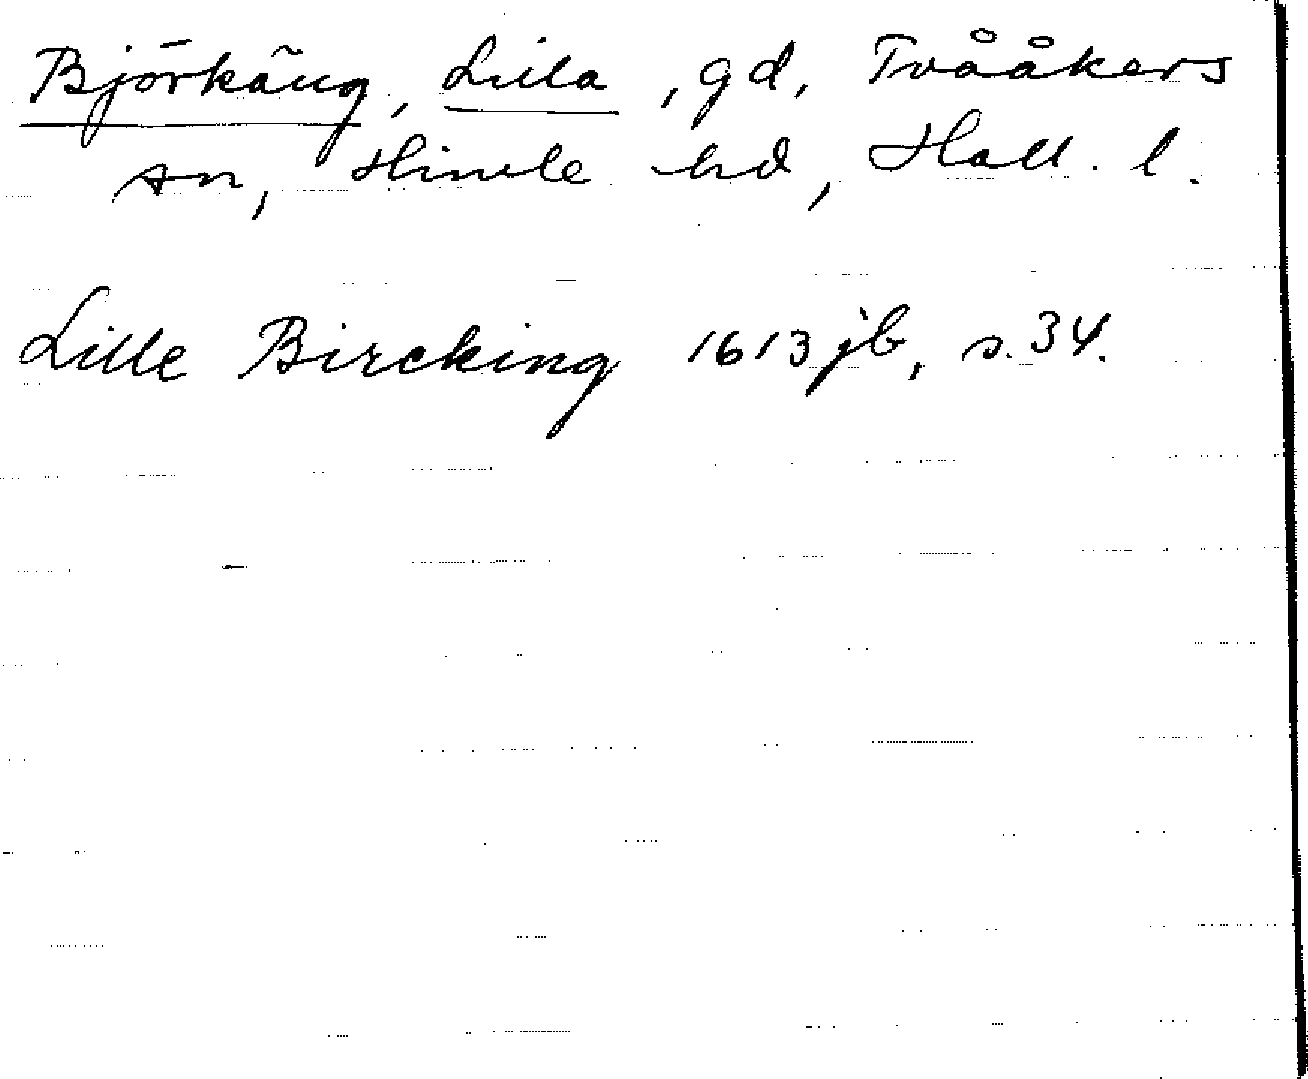 Björkäng, Lilla, gd, Tvååkers
sn, Himle hd, Hall. l.
Lille Bircking 1613 jb, s. 34.